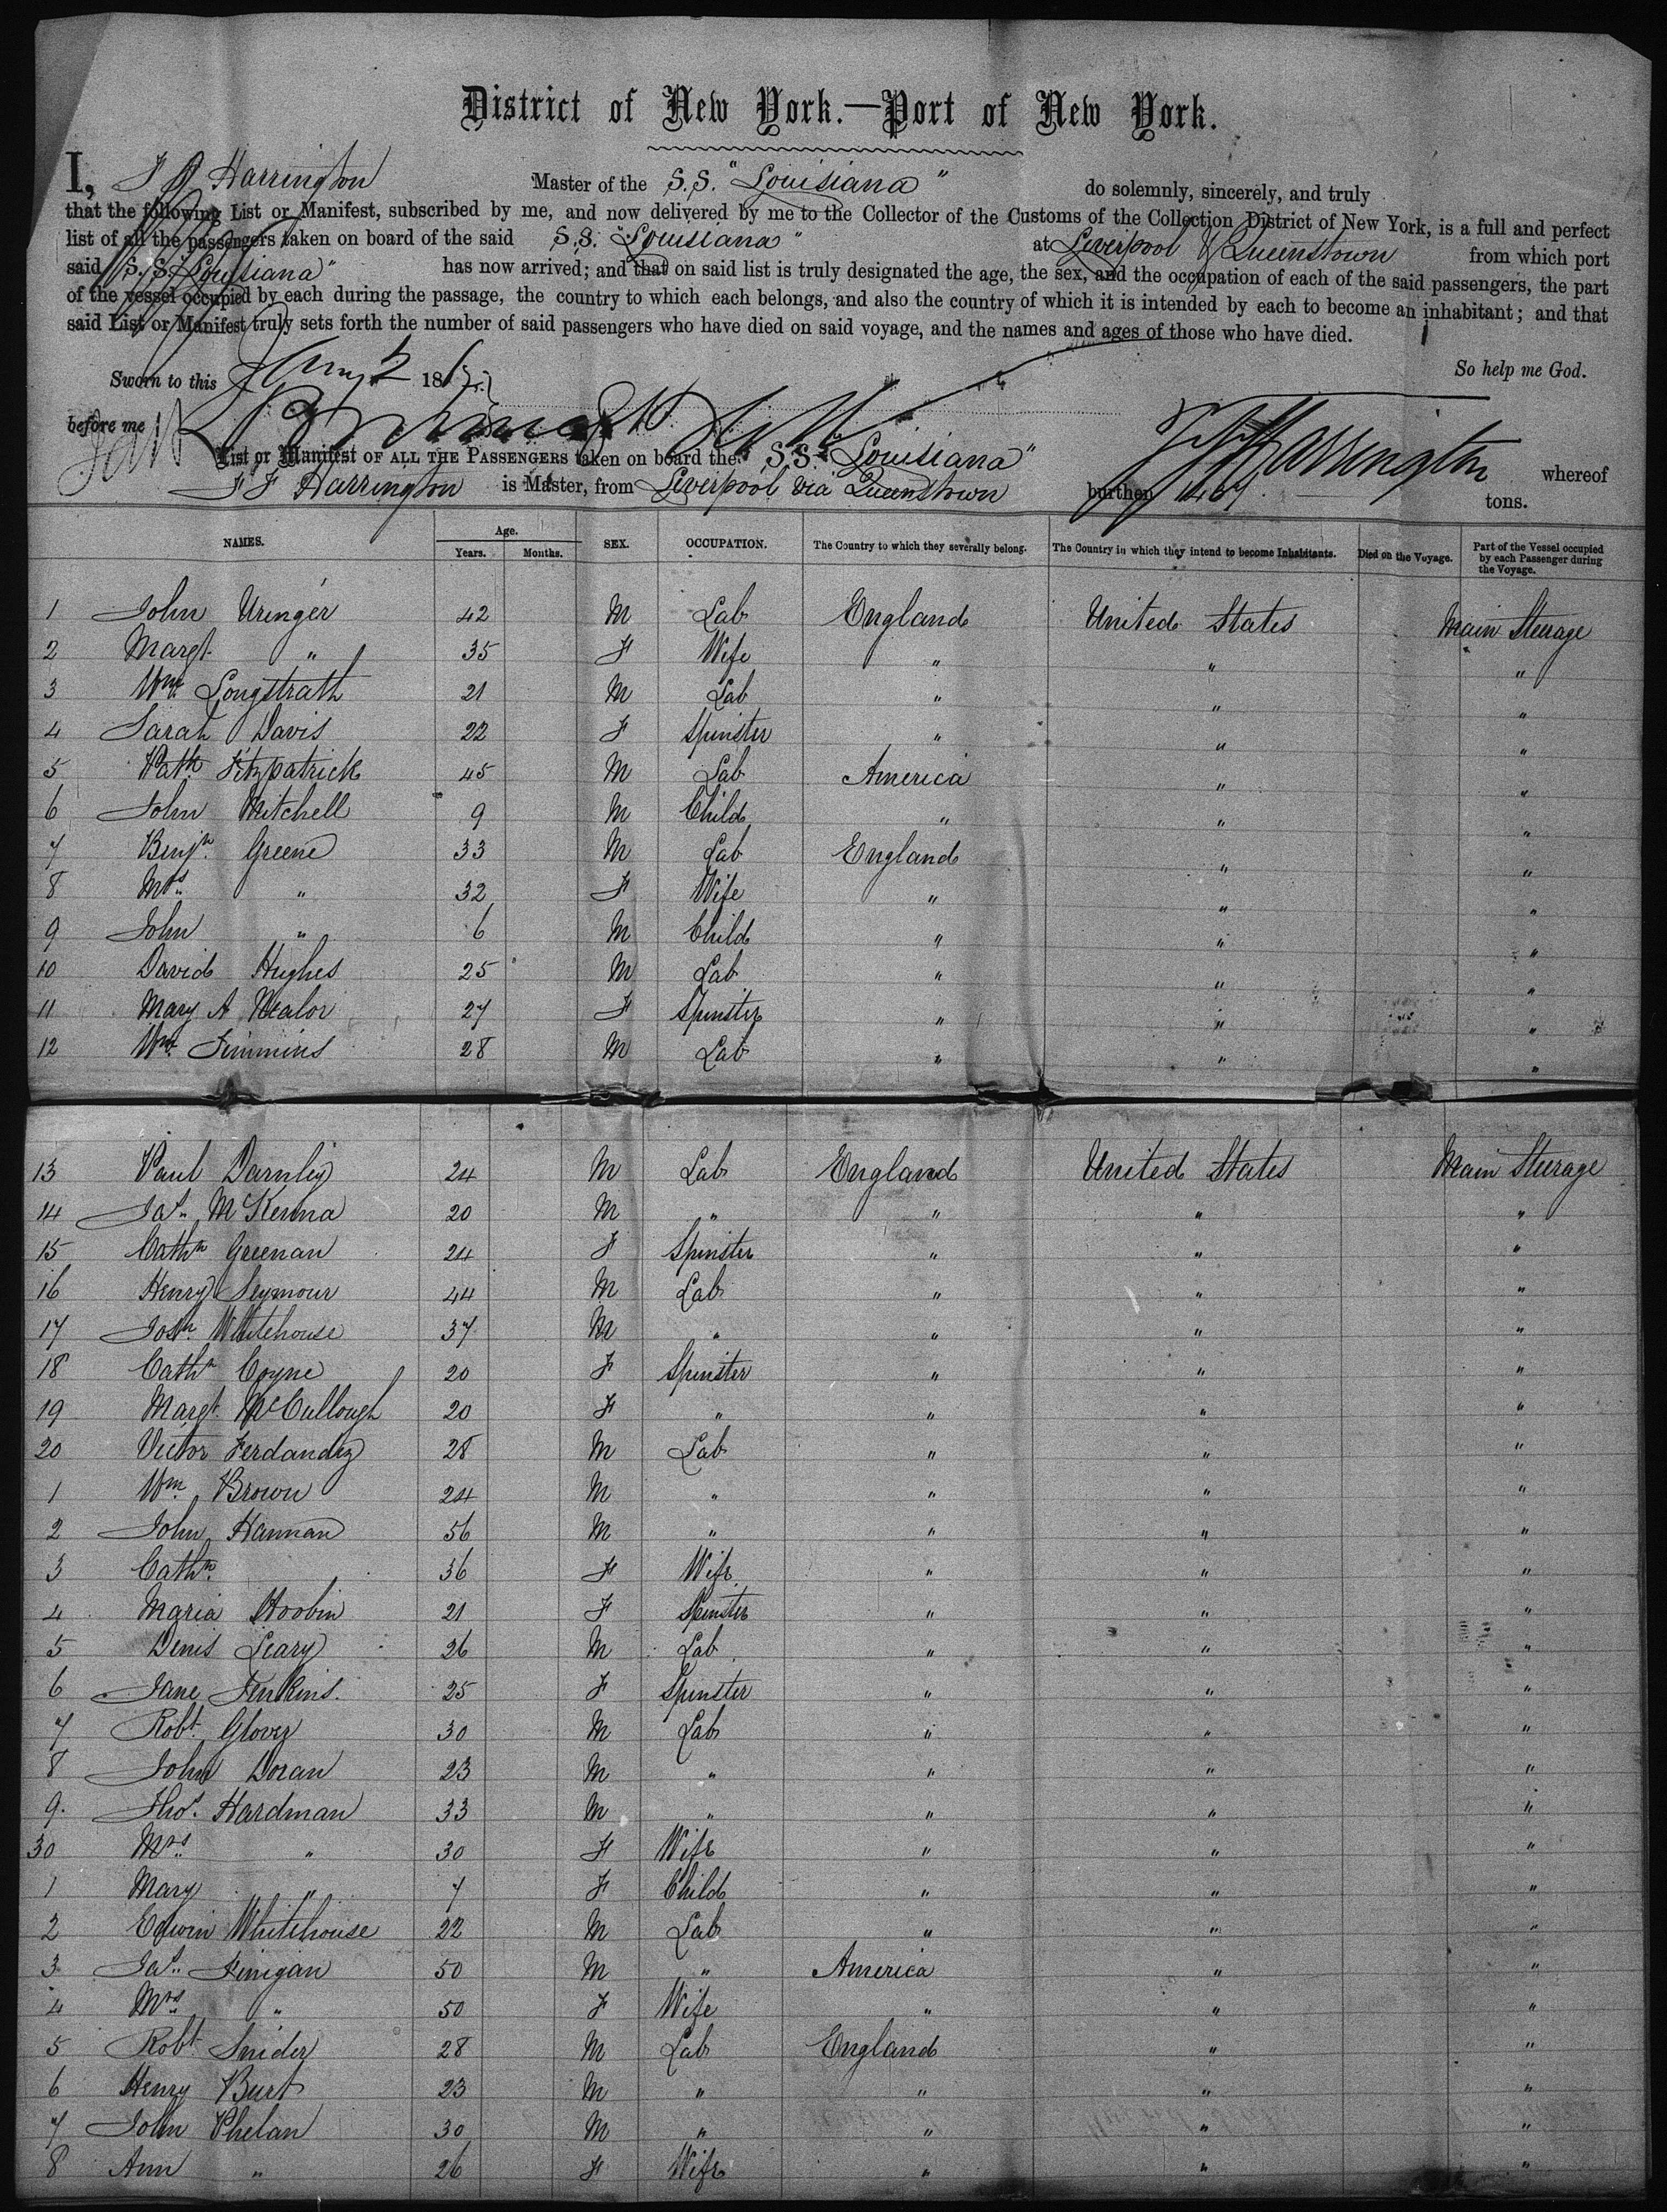 District of New York.—Port of New York.
I, F F Harrington Master of the S.S. "Louisiana" do solemnly, sincerely, and truly
that the following List or Manifest, subscribed by me, and now delivered by me to the Collector of the Customs of the Collection District of New York, is a full and perfect
list of all the passengers taken on board of the said S.S. "Louisiana" at Liverpool & Queenstown from which port
said S.S. "Louisiana" has now arrived; and that on said list is truly designated the age, the sex, and the occupation of each of the said passengers, the part
of the vessel occupied by each during the passage, the country to which each belongs, and also the country of which it is intended by each to become an inhabitant; and that
said List or Manifest truly sets forth the number of said passengers who have died on said voyage, and the names and ages of those who have died.
So help me God.
Sworn to this 186
before me F F Harrington
List or Manifest OF ALL THE PASSENGERS taken on board the S.S. "Louisiana" whereof
F F Harrington is Master, from Liverpool via Queenstown burthen tons.
NAMES. Age. Years. Months. SEX. OCCUPATION. The Country to which they severally belong. The Country in which they intend to become Inhabitants. Died on the Voyage. Part of the Vessel occupied by each Passenger during the Voyage.
1 John Uringer 42 M Lab England United States Main Steerage
2 Margt. " 35 F Wife " " "
3 Wm. Longstrath 21 M Lab " " "
4 Sarah Davis 22 F Spinster " " "
5 Patk Fitzpatrick 45 M Lab America " "
6 John Mitchell 9 M Child " " "
7 Benjn. Greene 33 M Lab England " "
8 Mrs. " 32 F Wife " " "
9 John " 6 M Child " " "
10 David Hughes 25 M Lab " " "
11 Mary A Nealor 27 F Spinster " " "
12 Wm. Timmins 28 M Lab " " "
13 Paul Darnley 24 M Lab England United States Main Steerage
14 Jas. McKenna 20 M " " " "
15 Cathn Greenan 24 F Spinster " " "
16 Henry Seymour 44 M Lab " " "
17 Josh. Whitehouse 37 M " " " "
18 Cathn Coyne 20 F Spinster " " "
19 Margt. McCullough 20 F " " " "
20 Victor Ferdandez 28 M Lab " " "
1 Wm. Brown 24 M " " " "
2 John Hannan 56 M " " " "
3 Cathn. 36 F Wife " " "
4 Maria Hoobin 21 F Spinster " " "
5 Denis Leary 26 M Lab " " "
6 Jane Jenkins. 25 F Spinster " " "
7 Robt. Glover 30 M Lab " " "
8 John Doran 23 M " " " "
9. Thos. Hardman 33 M " " " "
30 Mrs. " 30 F Wife " " "
1 Mary " 7 F Child " " "
2 Edwin Whitehouse 22 M Lab " " "
3 Jas. Finigan 50 M " America " "
4 Mrs. " 50 F Wife " " "
5 Robt. Snider 28 M Lab England " "
6 Henry Burt 23 M " " " "
7 John Phelan 30 M " " " "
8 Ann " 26 F Wife " " "